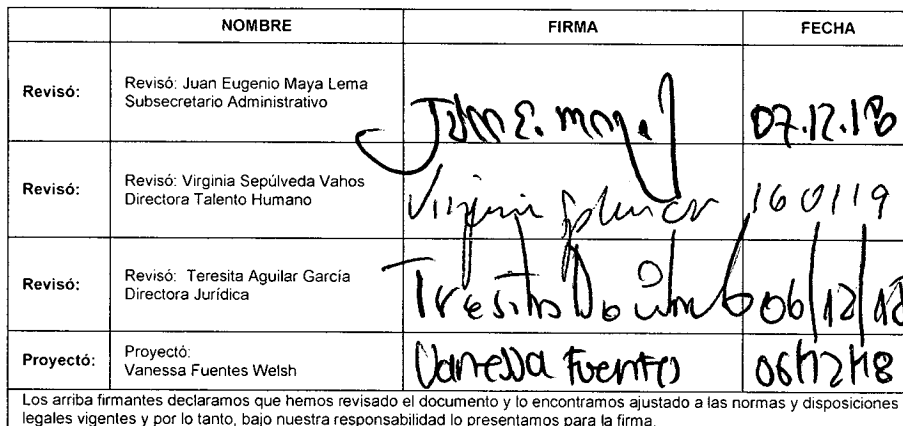 NOMBRE FIRMA FECHA
Revisó: Revisó: Juan Eugenio Maya Lema
Subsecretario Administrativo
Juan E. Maya 07.12.18
Revisó: Revisó: Virginia Sepúlveda Vahos
Directora Talento Humano
Virginia 16 01 19
Revisó: Revisó: Teresita Aguilar García
Directora Jurídica
Teresita 06/12/18
Proyectó: Proyectó:
Vanessa Fuentes Welsh
Vanessa Fuentes 06/12/18
Los arriba firmantes declaramos que hemos revisado el documento y lo encontramos ajustado a las normas y disposiciones
legales vigentes y por lo tanto, bajo nuestra responsabilidad lo presentamos para la firma.